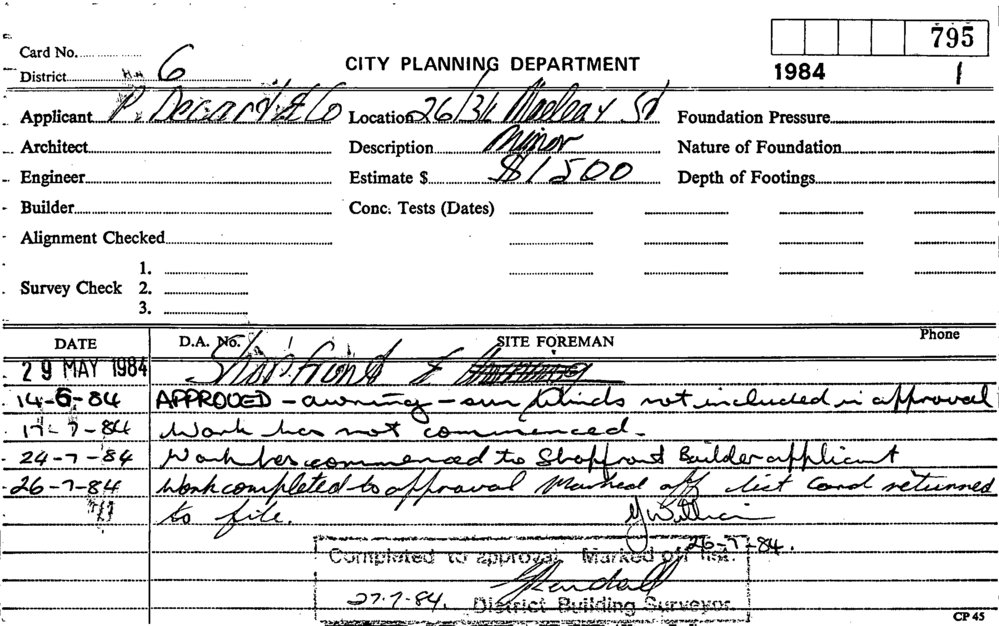 795
Card No.
CITY PLANNING DEPARTMENT
1984 1
District 6
Applicant P. & Co Location 26/34 Macleay St Foundation Pressure
Architect Description Minor Nature of Foundation
Engineer Estimate $ $1500 Depth of Footings
Builder Conc. Tests (Dates)
Alignment Checked
1.
Survey Check 2.
3.
DATE D.A. No. SITE FOREMAN Phone
29 MAY 1984 Shopfront &
14-6-84 APPROVED - awning - sun blinds not included in approval
17-7-84 Work has not commenced.
24-7-84 Work has commenced to Shopfront Builder applicant
26-7-84 Work completed to approval Marked off list Card returned
to file.
26-7-84.
Completed to approval. Marked off list.
27.7.84. District Building Surveyor.
CP 45